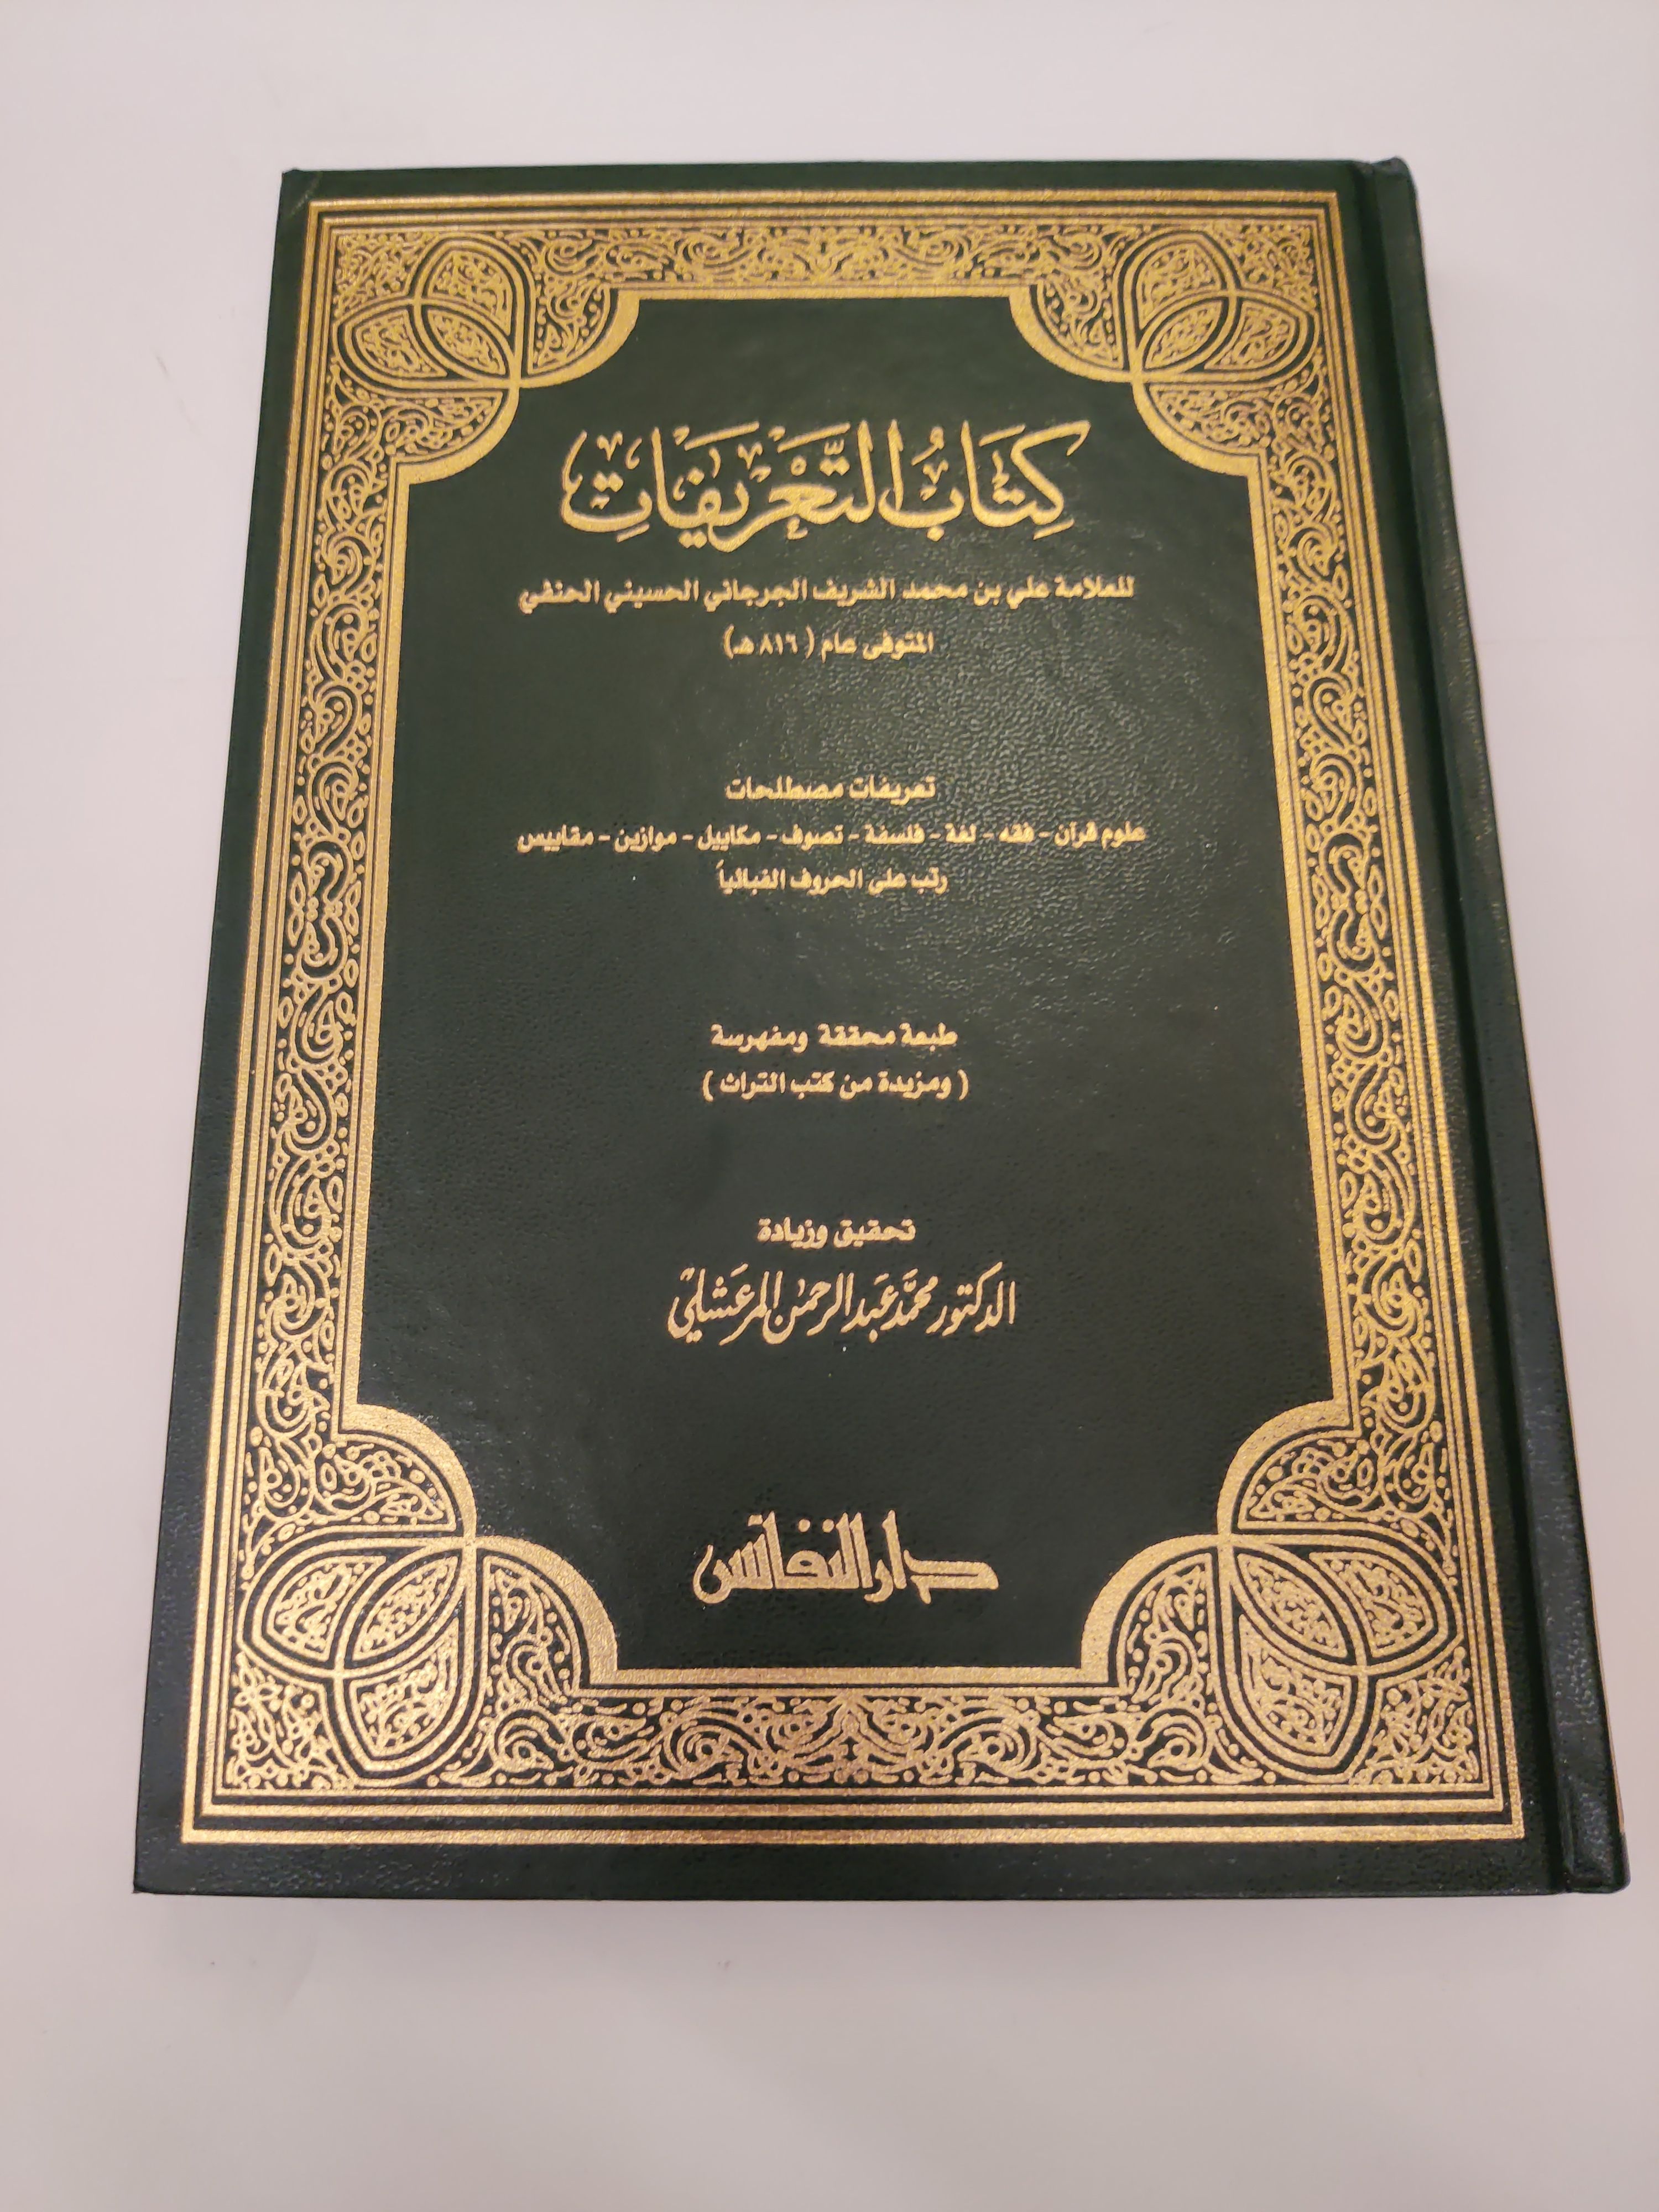 كِتَابُ التَّعْرِيفَاتِ
للعلامة علي بن محمد الشريف الجرجاني الحسيني الحنفي
المتوفى عام ( ٨١٦ هـ)
تعريفات مصطلحات
علوم قرآن - فقه - لغة - فلسفة - تصوف - مكاييل - موازين - مقاييس
رتب على الحروف الفبائياً
طبعة محققة ومفهرسة
( ومزيدة من كتب التراث )
تحقيق وزيادة
الدكتور محمَّد عَبد الرحمٰن المرعَشلي
دار النفائس